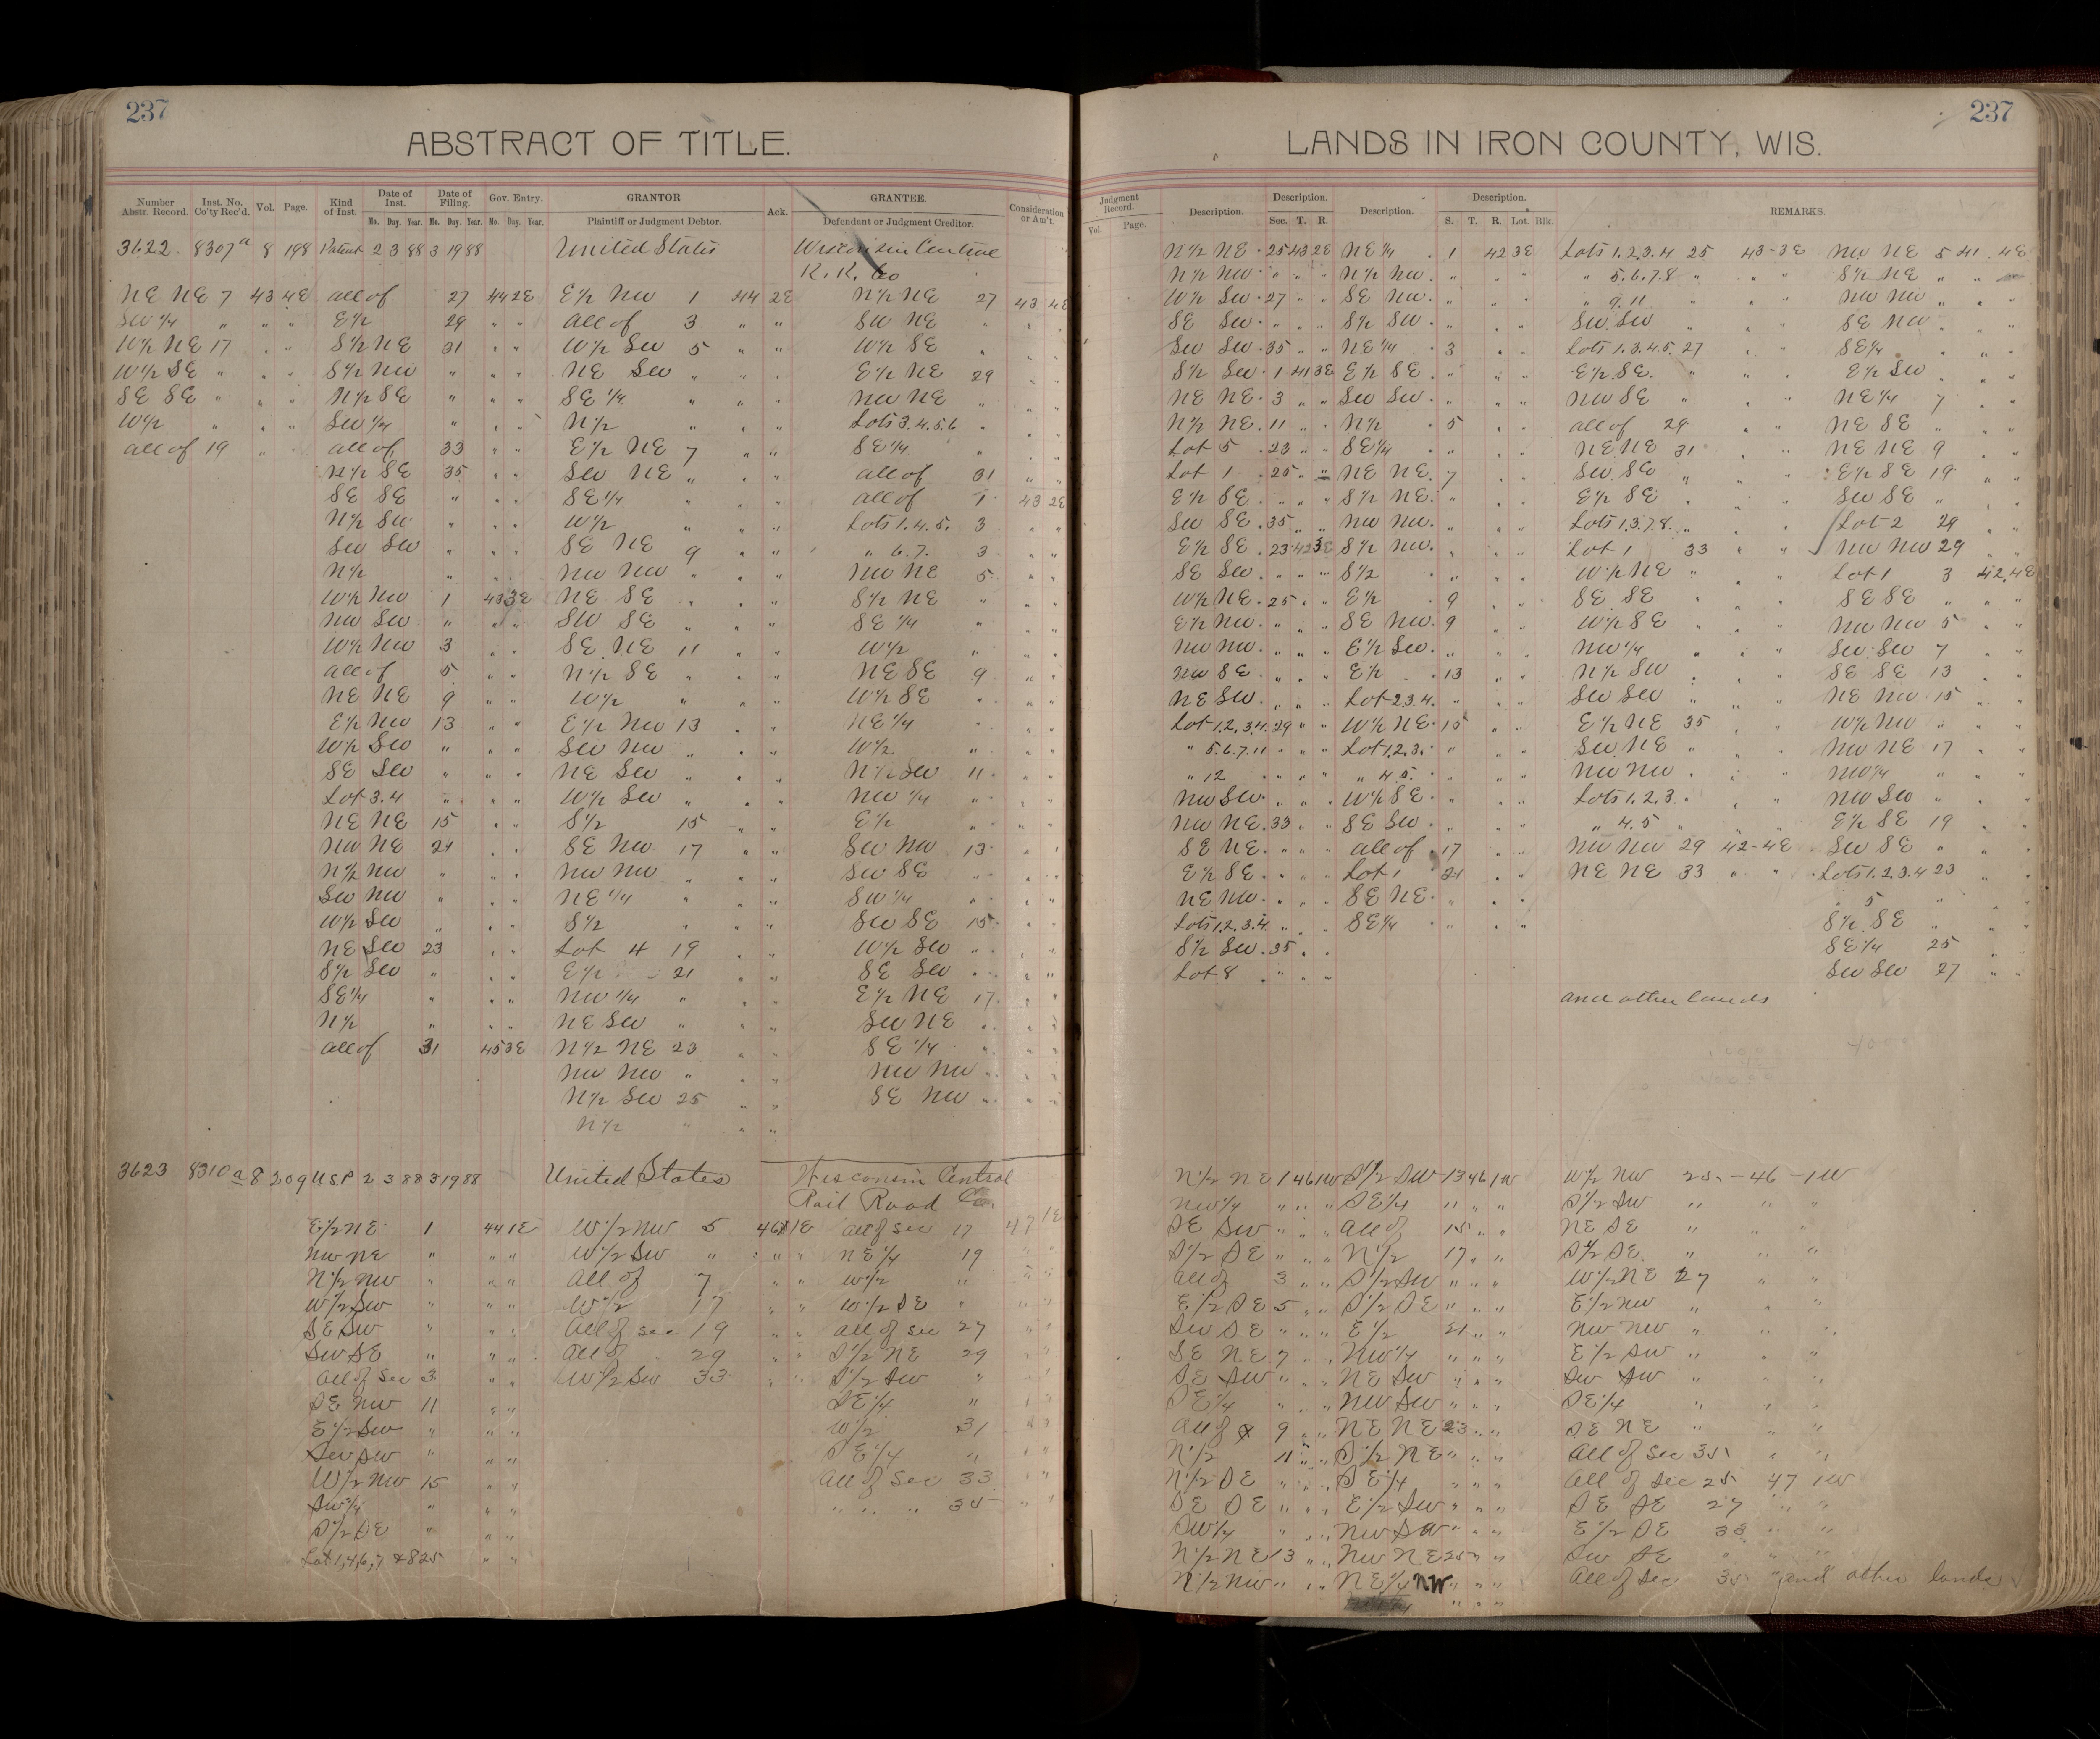 237
ABSTRACT OF TITLE.
Number Abstr. Record. Inst. No. Co'ty Rec'd. Vol. Page. Kind of Inst. Date of Inst. Mo. Day. Year. Date of Filing. Mo. Day. Year. Gov. Entry. Mo. Day. Year. GRANTOR Plaintiff or Judgment Debtor. Ack. GRANTEE. Defendant or Judgment Creditor. Consideration or Am't.
3622. 8307a 8 198 Patent 2 3 88 3 19 88 United States Wisconsin Central
R. R. Co
NE NE 7 43 4E all of 27 44 2E E½ NW 1 44 2E N½ NE 27 43 4E
SW ¼ " " " E½ 29 " " all of 3 " " SW NE " " "
W½ NE 17 " " S½ NE 31 " " W½ SW 5 " " W½ SE " " "
W½ SE " " " S½ NW " " " NE SW " " " E½ NE 29 " "
SE SE " " " N½ SE " " " SE ¼ " " " NW NE " " "
W½ " " " SW ¼ " " " N½ " " " Lots 3.4.5.6 " " "
all of 19 " all of 33 " " E½ NE 7 " " SE ¼ " " "
N½ SE 35 " " SW NE " " " all of 31 " "
SE SE " " " SE ¼ " " " all of 1 43 2E
N½ SW " " " W½ " " " Lots 1.4.5. 3 " "
SW SW " " " SE NE 9 " " " 6.7. 3 " "
N½ " " " NW NW " " " NW NE 5 " "
W½ NW 1 43 3E NE SE " " " S½ NE " " "
NW SW " " " SW SE " " " SE ¼ " " "
W½ NW 3 " " SE NE 11 " " W½ " " "
all of 5 " " N½ SE " " " NE SE 9 " "
NE NE 9 " " W½ " " " W½ SE " " "
E½ NW 13 " " E½ NW 13 " " NE ¼ " " "
W½ SW " " " SW NW " " " W½ " " "
SE SW " " " NE SW " " " N½ SW 11 " "
Lot 3.4 " " " W½ SW " " " NW ¼ " " "
NE NE 15 " " S½ 15 " " E½ " " "
NW NE 21 " " SE NW 17 " " SW NW 13 " "
N½ NW " " " NW NW " " " SW SE " " "
SW NW " " " NE ¼ " " " SW ¼ " " "
W½ SW " " " S½ " " " SW SE 15 " "
NE SW 23 " " Lot 4 19 " " W½ SW " " "
S½ SW " " " E½ 21 " " SE SW " " "
SE ¼ " " " NW ¼ " " " E½ NE 17 " "
N½ " " " NE SW " " " SW NE " " "
all of 31 45 3E N½ NE 23 " " SE ¼ " " "
NW NW " " " NW NW " " "
N½ SW 25 " " SE NW " " "
N½ " " "
3623 8310 a 8 209 U.S.P 2 3 88 3 19 88 United States Wisconsin Central
Rail Road Co.
E½ NE 1 44 1E W½ NW 5 46 1E all of sec 17 47 1E
NW NE " " " W½ SW " " " NE ¼ 19 " "
N½ NW " " " All of 7 " " W½ " " "
W½ SW " " " W½ 17 " " W½ SE " " "
SE SW " " " All of sec 19 " " all of sec 27 " "
SW SE " " " All of 29 " " S½ NE 29 " "
all of sec 3 " " W½ SW 33 " " S½ SW " " "
SE NW 11 " " SE ¼ " " "
E½ SW " " " W½ 31 " "
SW SW " " " SE ¼ " " "
W½ NW 15 " " all of Sec 33 " "
SW ¼ " " " " " " 35 " "
S½ SE " " "
Lot 1,4,6,7 & 8 25 " "
237
LANDS IN IRON COUNTY, WIS.
Judgment Record. Vol. Page. Description. Description. Sec. T. R. Description. Description. S. T. R. Lot. Blk. REMARKS.
N½ NE 25 43 2E NE ¼ 1 42 3E Lots 1.2.3.4 25 43-3E NW NE 5 41 4E
N½ NW " " " N½ NW " " " " 5.6.7.8 " " " S½ NE " " "
W½ SW 27 " " SE NW " " " " 9.11 " " " NW NW " " "
SE SW " " " S½ SW " " " SW SW " " " SE NW " " "
SW SW 35 " " NE ¼ 3 " " Lots 1.3.4.5. 27 " " SE ¼ " " "
S½ SW 1 41 3E E½ SE " " " E½ SE " " " E½ SW " " "
NE NE 3 " " SW SW " " " NW SE " " " NE ¼ 7 " "
N½ NE 11 " " N½ 5 " " all of 29 " " NE SE " " "
Lot 5 23 " " SE ¼ " " " NE NE 31 " " NE NE 9 " "
Lot 1 25 " " NE NE 7 " " SW SE " " " E½ SE 19 " "
E½ SE " " " S½ NE " " " E½ SE " " " SW SE " " "
SW SE 35 " " NW NW " " " Lots 1.3.7.8. " " " Lot 2 29 " "
E½ SE 23 42 3E S½ NW " " " Lot 1 33 " " NW NW 29 " "
SE SW " " " S½ " " " W½ NE " " " Lot 1 3 42 4E
W½ NE 25 " " E½ 9 " " SE SE " " " SE SE " " "
E½ NW " " " SE NW 9 " " W½ SE " " " NW NW 5 " "
NW NW " " " E½ SW " " " NW ¼ " " " SW SW 7 " "
NW SE " " " E½ 13 " " N½ SW " " " SE SE 13 " "
NE SW " " " Lot 2.3.4. " " " SW SW " " " NE NW 15 " "
Lot 1.2.3.4. 29 " " W½ NE 15 " " E½ NE 35 " " W½ NW " " "
" 5.6.7.11 " " " Lot 1.2.3. " " " SW NE " " " NW NE 17 " "
" 12 " " " " 4.5. " " " NW NW " " " NW ¼ " " "
NW SW " " " W½ SE " " " Lots 1.2.3. " " " NW SW " " "
NW NE 33 " " SE SW " " " " 4.5 " " " E½ SE 19 " "
SE NE " " " all of 17 " " NW NW 29 42-4E SW SE " " "
E½ SE " " " Lot 1 21 " " NE NE 33 " " Lots 1.2.3.4 23 " "
NE NW " " " SE NE " " " " 5 " " "
Lots 1.2.3.4. " " " SE ¼ " " " S½ SE " " "
S½ SW 35 " " SE ¼ 25 " "
Lot 8 " " " SW SW 27 " "
and other lands
N½ NE 1 46 1W S½ SW 13 46 1W W½ NW 25 - 46 - 1W
NW ¼ " " " SE ¼ " " " S½ SW " " "
SE SW " " " all of 15 " " NE SE " " "
S½ SE " " " N½ 17 " " S½ SE " " "
all of 3 " " S½ SW " " " W½ NE 27 " "
E½ SE 5 " " S½ SE " " " E½ NW " " "
SW SE " " " E½ 21 " " NW NW " " "
SE NE 7 " " NW ¼ " " " E½ SW " " "
SE SW " " " NE SW " " " SW SW " " "
SE ¼ " " " NW SW " " " SE ¼ " " "
all of 9 " " NE NE 23 " " SE NE " " "
N½ 11 " " S½ NE " " " All of Sec 35 " "
N½ SE " " " SE ¼ " " " all of Sec 25 47 1W
SE SE " " " E½ SW " " " SE SE 27 " "
SW ¼ " " " NW SW " " " E½ SE 33 " "
N½ NE 13 " " NW NE 25 " " SW SE " " "
N½ NW " " " NE ¼ NW " " " all of Sec 35 " and other lands